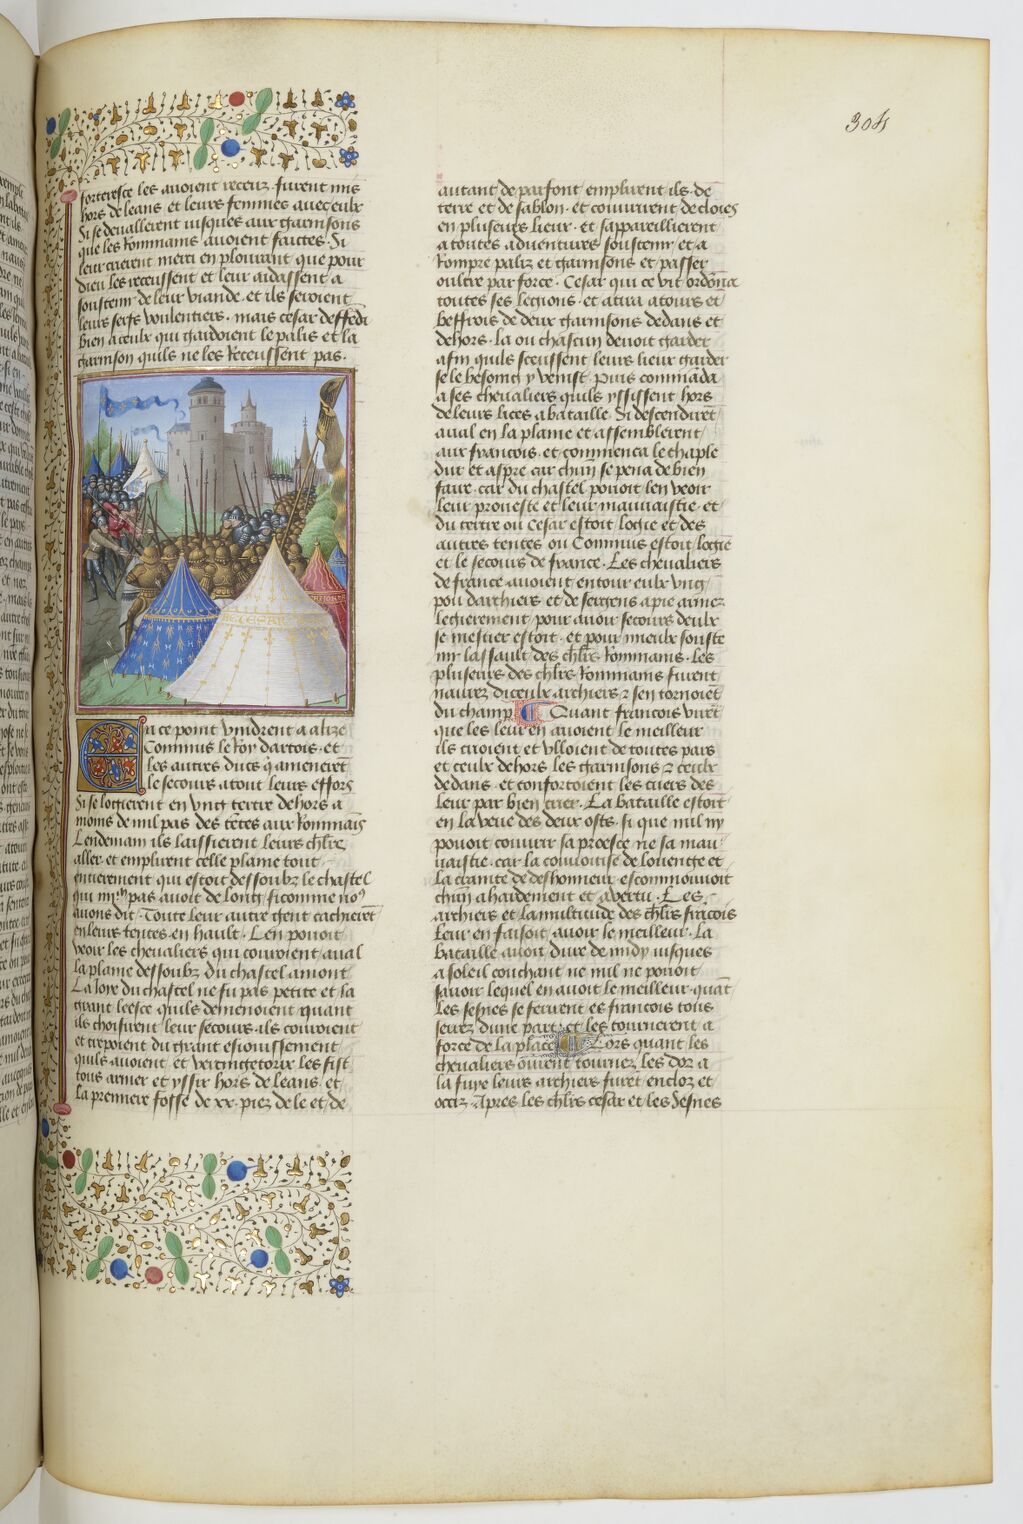 304
forteresce les auoient receuz. furent mis
hors de leans et leurs femmes auec eulx
Si se deuallerent iusques aux garnisons
que les Rommains auoient faictes. Si
leur crierent merci en plourant que pour
dieu les receussent et leur aidassent a
soustenir de leur viande. et ils seroient
leurs serfs voulentiers. mais cesar deffēdi
bien a ceulx qui gardoient le palis et la
garnison quils ne les Receussent pas.
CESAR
En ce point vindrent a alize
Commius le Roy dartois. et
les autres ducs q̄ amenerēt
le secours atout leurs effors
Si se logierent en vng tertre dehors a
moins de mil pas des tētes aux Rommaīs
Lendemain ils laissierent leurs chl̄rs
aller et emplirent celle plaine tout
entierement qui estoit dessoubz le chastel
qui iii.ᵐ pas auoit de long sicomme noꝰ
auons dit. Toute leur autre gent cachierēt
en leurs tentes en hault. Len pouoit
veoir les cheualiers qui couroient aual
la plaine dessoubz du chastel amont
La ioye du chastel ne fu pas petite et la
grant leesce quils demenoient quant
ils choisirent leur secours. ils couroient
et trepoient du grant esiouissement
quils auoient et vercingetorix les fist
tous armer et yssir hors de leans. et
la premiere fosse de xx. piez de le et de
autant de parfont emplirent ils de
terre et de sablon. et couurirent de cloies
en pluseurs lieux. et sappareillierent
a toutes aduentures soustenir et a
Rompre paliz et garnisons et passer
oultre par force. Cesar qui ce vit ordōna
toutes ses legions. et atira a tours et
beffrois de deux garnisons dedans et
dehors. la ou chascun deuoit garder
afin quils sceussent leurs lieux garder
se le besoing y venist. Puis commāda
a ses cheualiers quils yssissent hors
de leurs lices a bataille. Si descendirēt
aual en la plaine et assemblerent
aux francois. et commenca le chaple
dur et aspre car chūn se pena de bien
faire. car du chastel pouoit len veoir
leur proueste et leur mauuaistie et
du tertre ou Cesar estoit logie et des
autres tentes ou Commius estoit logie
et le secours de france. Les cheualiers
de france auoient entour eulx vng
pou darchiers et de sergens a pie armez
legierement pour auoir secours deulx
se mestier estoit. et pour mieulx souste
nir lassault des chl̄rs Rommains. Les
pluseurs des chl̄rs Rommains furent
naurez diceulx archiers ⁊ sen tornoiēt
du champ. Quant francois virēt
que les leur en auoient le meilleur
ils crioient et vlloient de toutes pars
et ceulx dehors les garnisons ⁊ ceulx
dedans. et confortoient les cuers des
leur par bien crier. La bataille estoit
en la veue des deux osts. si que nul ny
pouoit couurir sa proesce ne sa mau
uaistie. car la couuoitise de louenge et
la crainte de deshonneur escommouuoit
chūn a hardement et a vertu. Les
archiers et la multitude des chl̄rs frācois
leur en faisoit auoir le meilleur. La
bataille auoit dure de midy iusques
a soleil couchant ne nul ne pouoit
sauoir lequel en auoit le meilleur. quāt
les sesnes se ferirent es francois tous
serrez dune part. et les tournerent a
force de la place. Lors quant les
cheualiers oirent tournez les doz a
la fuye leurs archiers furēt encloz et
occiz. Apres les chl̄rs cesar et les Sesnes